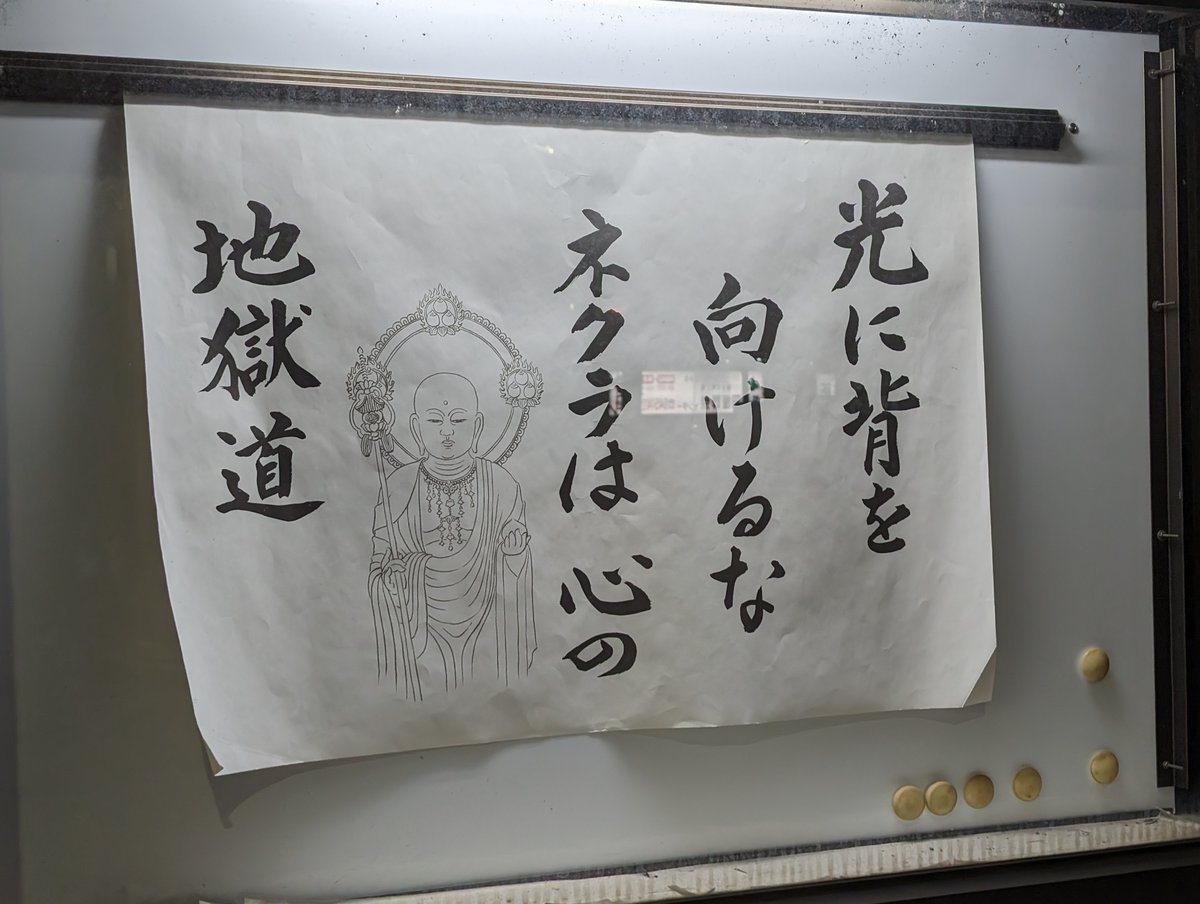 光に背を
向けるな
ネクラは 心の
地獄道